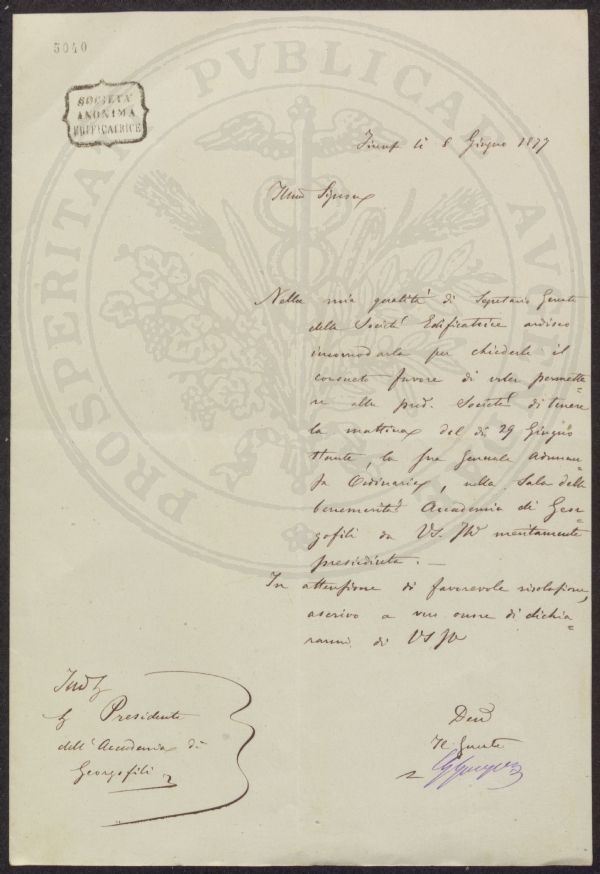 3040
SOCIETÀ
ANONIMA
EDIFICATRICE
PROSPERITATI PVBLICAE AVGENDAE
lì 8 Giugno 1877
Illmo Signore
Nella mia qualità di Segretario Gerente
della Società Edificatrice ardisco
incomodarla per chiederle il
consueto favore di voler permette=
re alla pred. Società di tenere
la mattina del dì 29 Giugno
stante, la sua Generale Adunan=
za Ordinaria, nella Sala della
benemerita Accademia di Geor=
gofili da VS. Illma meritamente
presieduta. —
In attenzione di favorevole risoluzione,
ascrivo a vero onore di dichia=
rarmi di VS Illma
Devmo
Il Gerente
Presidente
dell'Accademia di
Georgofili